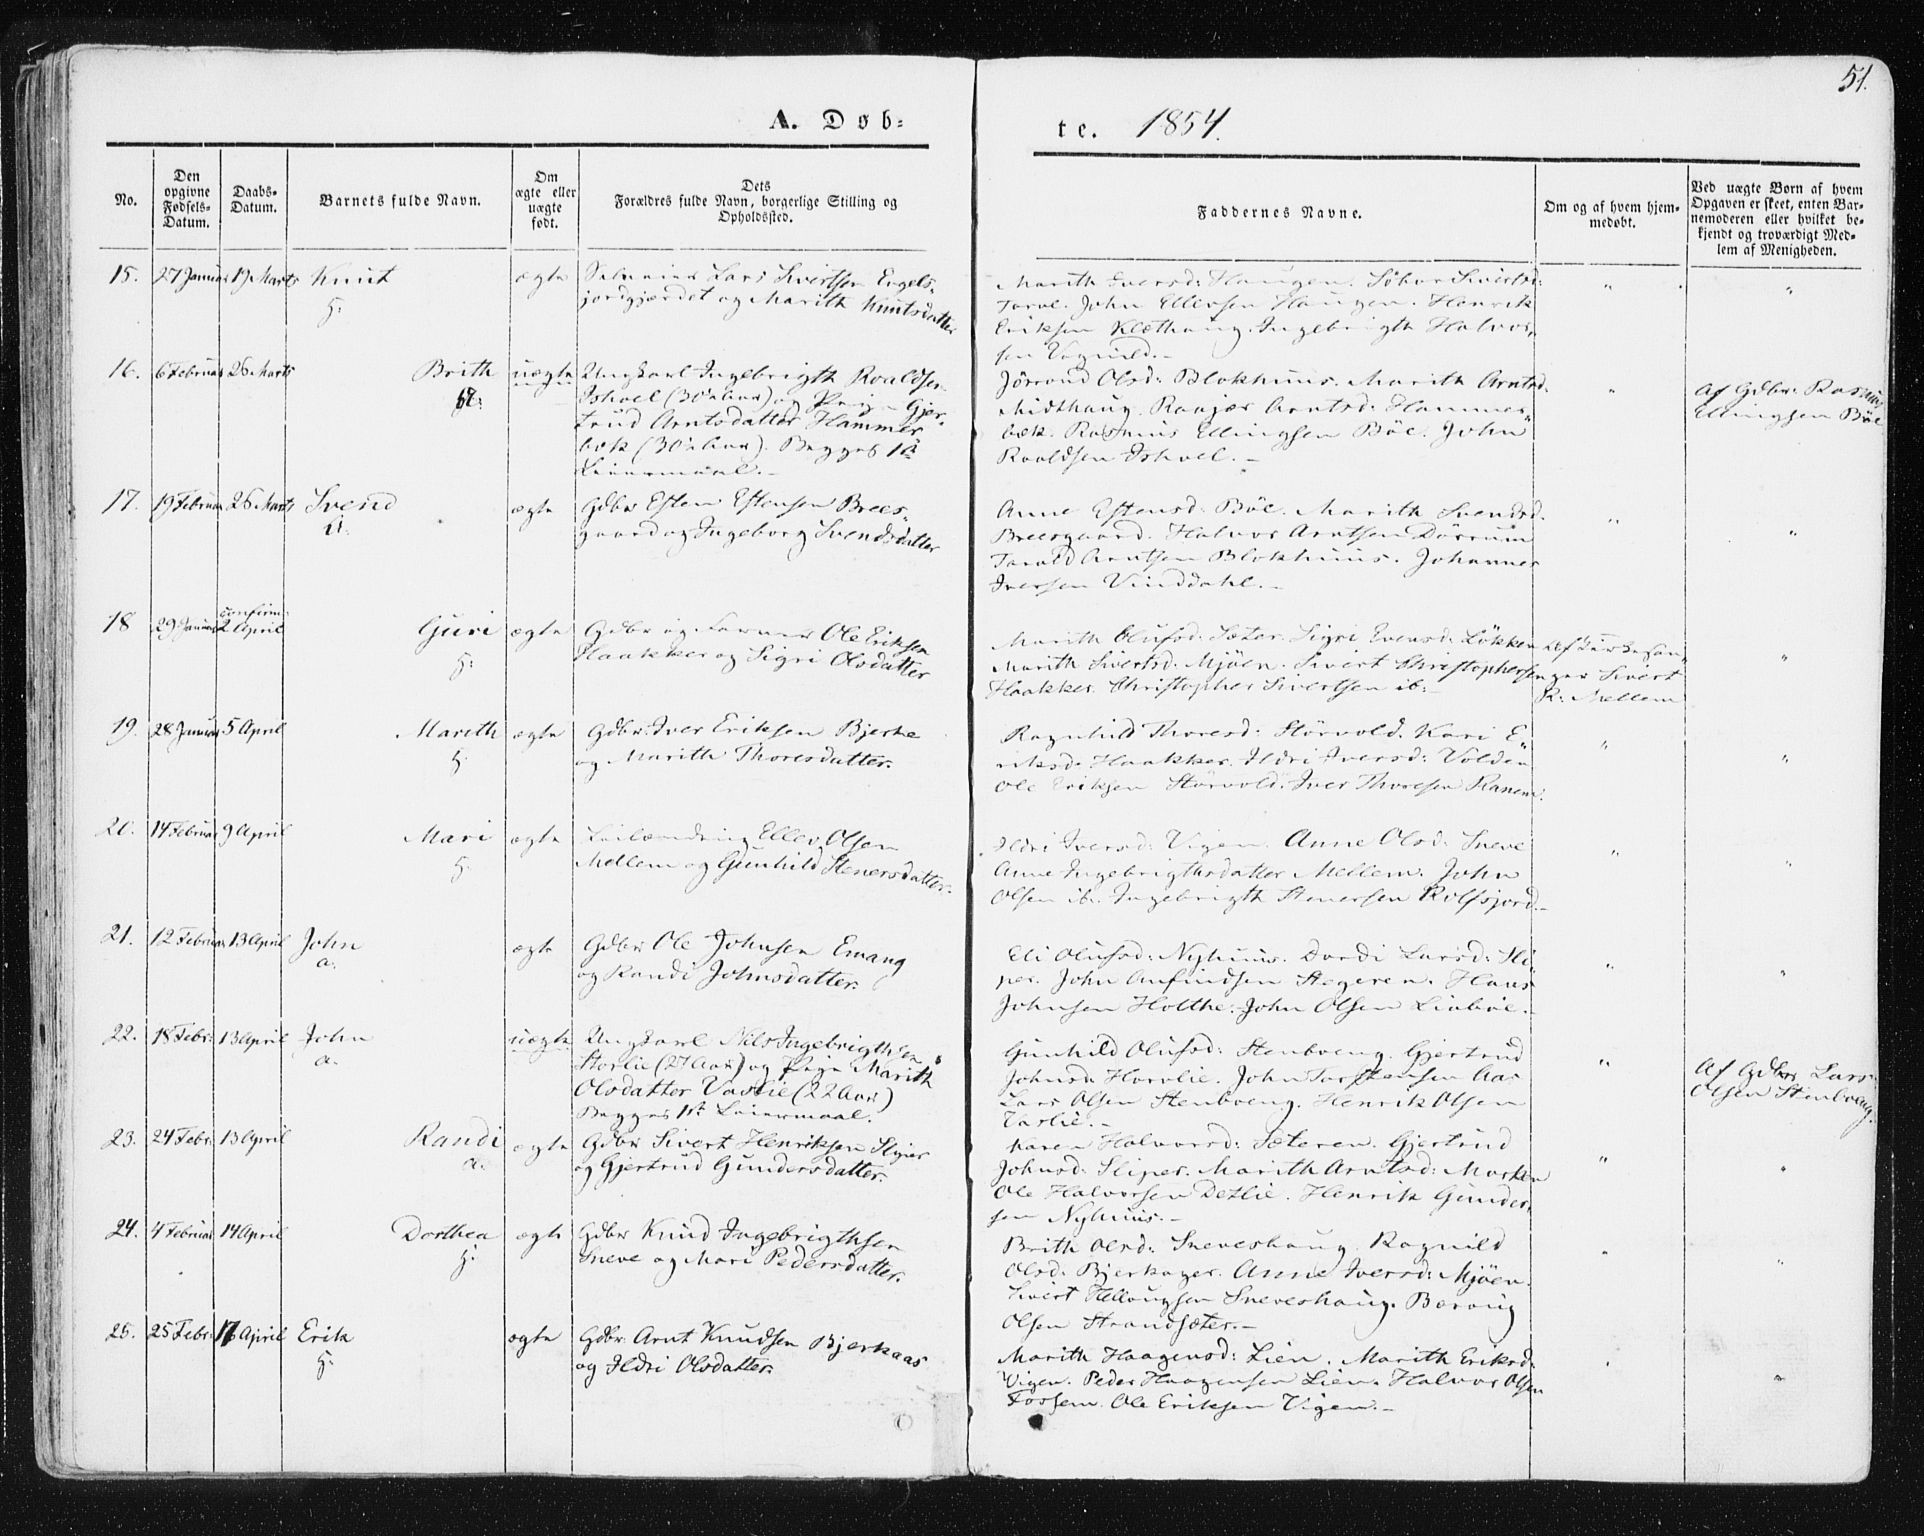 51.
A. Døb-
te. 1854.
No.
Den opgivne Fødsels-Datum.
Daabs-Datum.
Barnets fulde Navn.
Om ægte eller uægte født.
Dets
Forældres fulde Navn, borgerlige Stilling og
Opholdssted.
Faddernes Navne.
Om og af hvem hjem-
medøbt.
Ved uægte Børn af hvem
Opgaven er skeet, enten Bar-
nemoderen eller hvilket be-
kjendt og troværdigt Med-
lem af Menigheden.
15. 27 Januar 19 Marts Knut ægte Lars Sivertsen Engels-
jordgjerdet og Marith Knutsdatter
Marith Iversd: Haugen. Sivertsd:
John Ellevsen Haugen. Henrik
Eriksen Klæthaug. Ingebrigth Halvor-
sen Vognild.-
16. 6 Februar 26 Marts Brith uægte Ungkarl Ingebrigth Roaldsen
Ishoel (30 Aar) og Pige Gjer-
trud Arntsdatter Hammer
bæk (30 Aar). Begges 1ste
Leiermaal.-
Jörond Olsd: Blokhuus. Marith Arntsd:
Midthaug. Ranjer Arntsd: Hammer-
bæk. Rasmus Ellingsen Böe. John
Roaldsen Ishoel.-
Af Gdbr: Rasmus
Ellingsen Böe
17. 19 Februar 26 Marts Svend ægte Gdbr Esten Estensen Brees
gaard og Ingeborg Svendsdatter
Anne Estensd: Böe. Marith Svendsd.
Breesgaard. Halvor Arntsen Dörrum
Tarald Arntsen Blokhuus. Johannes
Iversen Vinddahl.-
18 29 Januar confirm: 2 April Guri ægte Gdbr og Ole Eriksen
Haakker og Sigri Olsdatter
Marith Olufsd: Sæter. Sigri Evensd: Lökken
Marith Sivertsd: Mjöen. Sivert Christophersen
Haakker. Christopher Sivertsen ib:
Af Kirkesan-
ger Sivert
R: Mellem
19. 28 Januar 5 April Marith ægte Gdbr: Iver Eriksen Bjerke
og Marith Thoresdatter.
Ragnhild Thoresd: Störvold. Kari E-
riksd: Haakker. Ildri Iversd: Volden
Ole Eriksen Störvold. Iver Thoresen Ranem.
20. 14 Februar 9 April Mari ægte Leilænding Ellev Olsen
Mellem og Gunhild Stenersdatter.
Ildri Iversd: Vigen. Anne Olsd: Sneve
Anne Ingebrigthsdatter Mellem. John
Olsen ib. Ingebrigth Stenersen Rolfsjord.-
21. 12 Februar 13 April John a. ægte Gdbr Ole Johnsen Emang
og Randi Johnsdatter.
Eli Olufsd: Nyhuus. Dordi Larsd: Sli-
per. John Anfindsen Stegeren. Hans
Johnsen Holthe. John Olsen Liaböe.-
22. 18 Febr: 13 April John a. uægte Ungkarl Nils Ingebrigthsen
Storlie (27 Aar) og Pige Marith
Olsdatter Vaslie (22 Aar)
Begges 1ste Leiermaal.
Gunhild Olufsd: Stenboeng. Gjertrud
Johnsd: Horvlie. John Torstensen Aas
Lars Olsen Stenboeng. Henrik Olsen
Vaslie.-
Af Gdbr Lars
Olsen Stenboeng.
23. 24 Febr: 13 April Randi a. ægte Gdbr Sivert Henriksen Sliper
og Gjertrud Gundersdatter.
Karen Halvorsd: Sæteren. Gjertrud
Johnsd: Sliper. Marith Arntsd: Morken
Ole Halvorsen Detlie. Henrik Gunder-
sen Nyhuus.-
24. 4 Februar 14 April Dorthea ægte Gdbr Knud Ingebrigthsen
Sneve og Mari Pedersdatter.
Brith Olsd: Sneveshaug. Ragnild
Olsd: Bjerkager. Anne Iversd: Mjöen.
Sivert Hellaugsen Sneveshaug. Beraug
Olsen Strandsæter.-
25. 25 Febr: 17 April Erik ægte Gdbr: Arnt Knudsen Bjerkaas
og Ildri Olsdatter.
Marith Haagensd: Lien. Marith Eriksd:
Vigen. Peder Haagensen Lien. Halvor Olsen
Fossem. Ole Eriksen Vigen.-